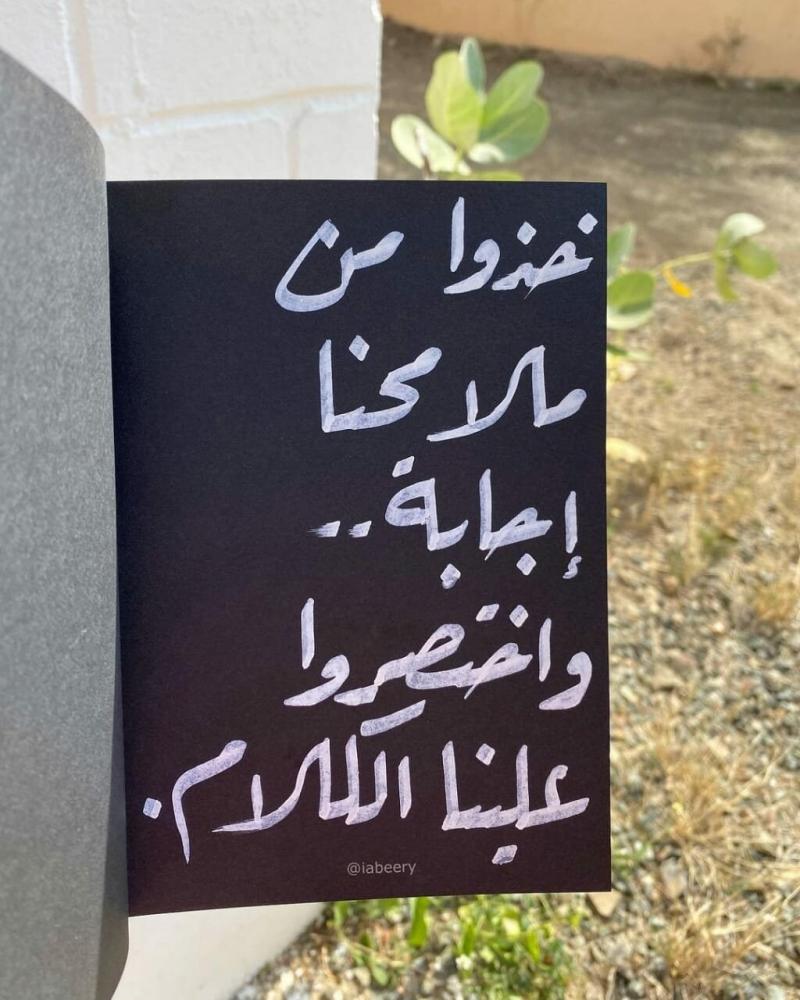 خذوا من
ملامحنا
إجابة..
واختصروا
علينا الكلام.
@iabeery